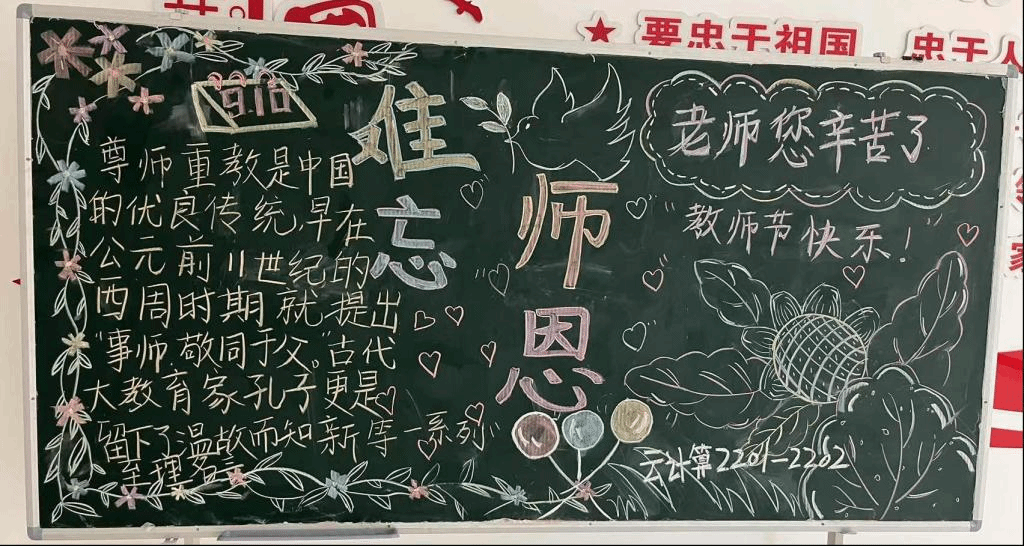 要忠于祖国
忠于人
9.10
难忘
师恩
尊师重教是中国
的优良传统,早在
公元前11世纪的
西周时期就提出
"事师敬同于父。"古代
大教育家孔子更是
留下了温故而知新等一系列
至理名言
老师您辛苦了
教师节快乐!
云计算2201-2202